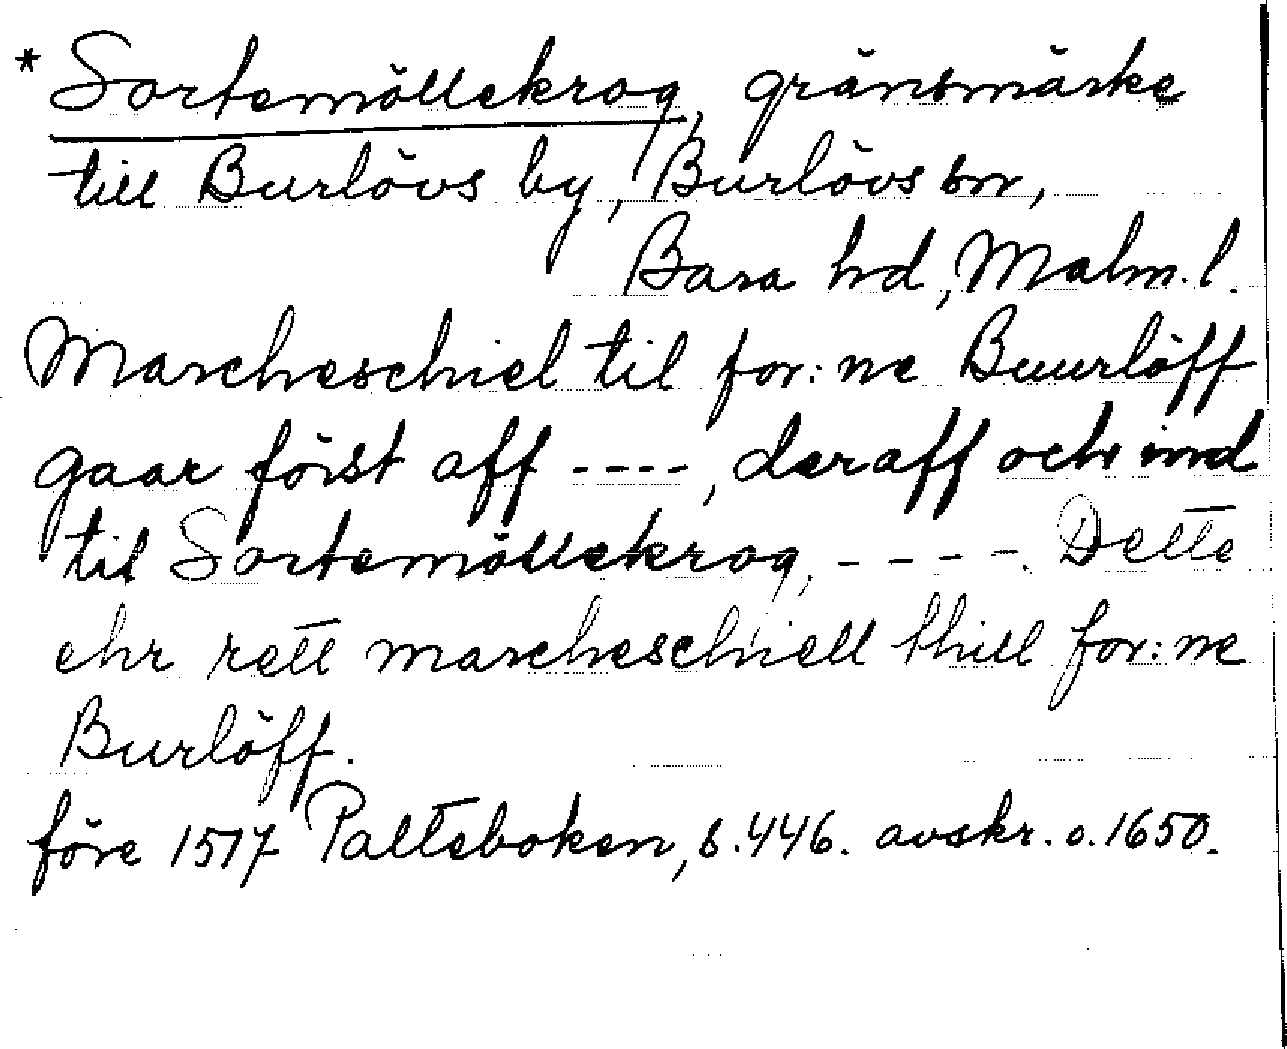 * Sortemöllekrog, gränsmärke
till Burlövs by, Burlövs sn,
Bara hd, Malm. l.
Marcheschiel til for:ne Buurlöff
gaar först aff ----, deraff och ind
til Sortemöllekrog, ----. Dette
ehr rett marcheschiell thill for:ne
Burlöff.
före 1517 Palteboken, s. 446. avskr. o. 1650.